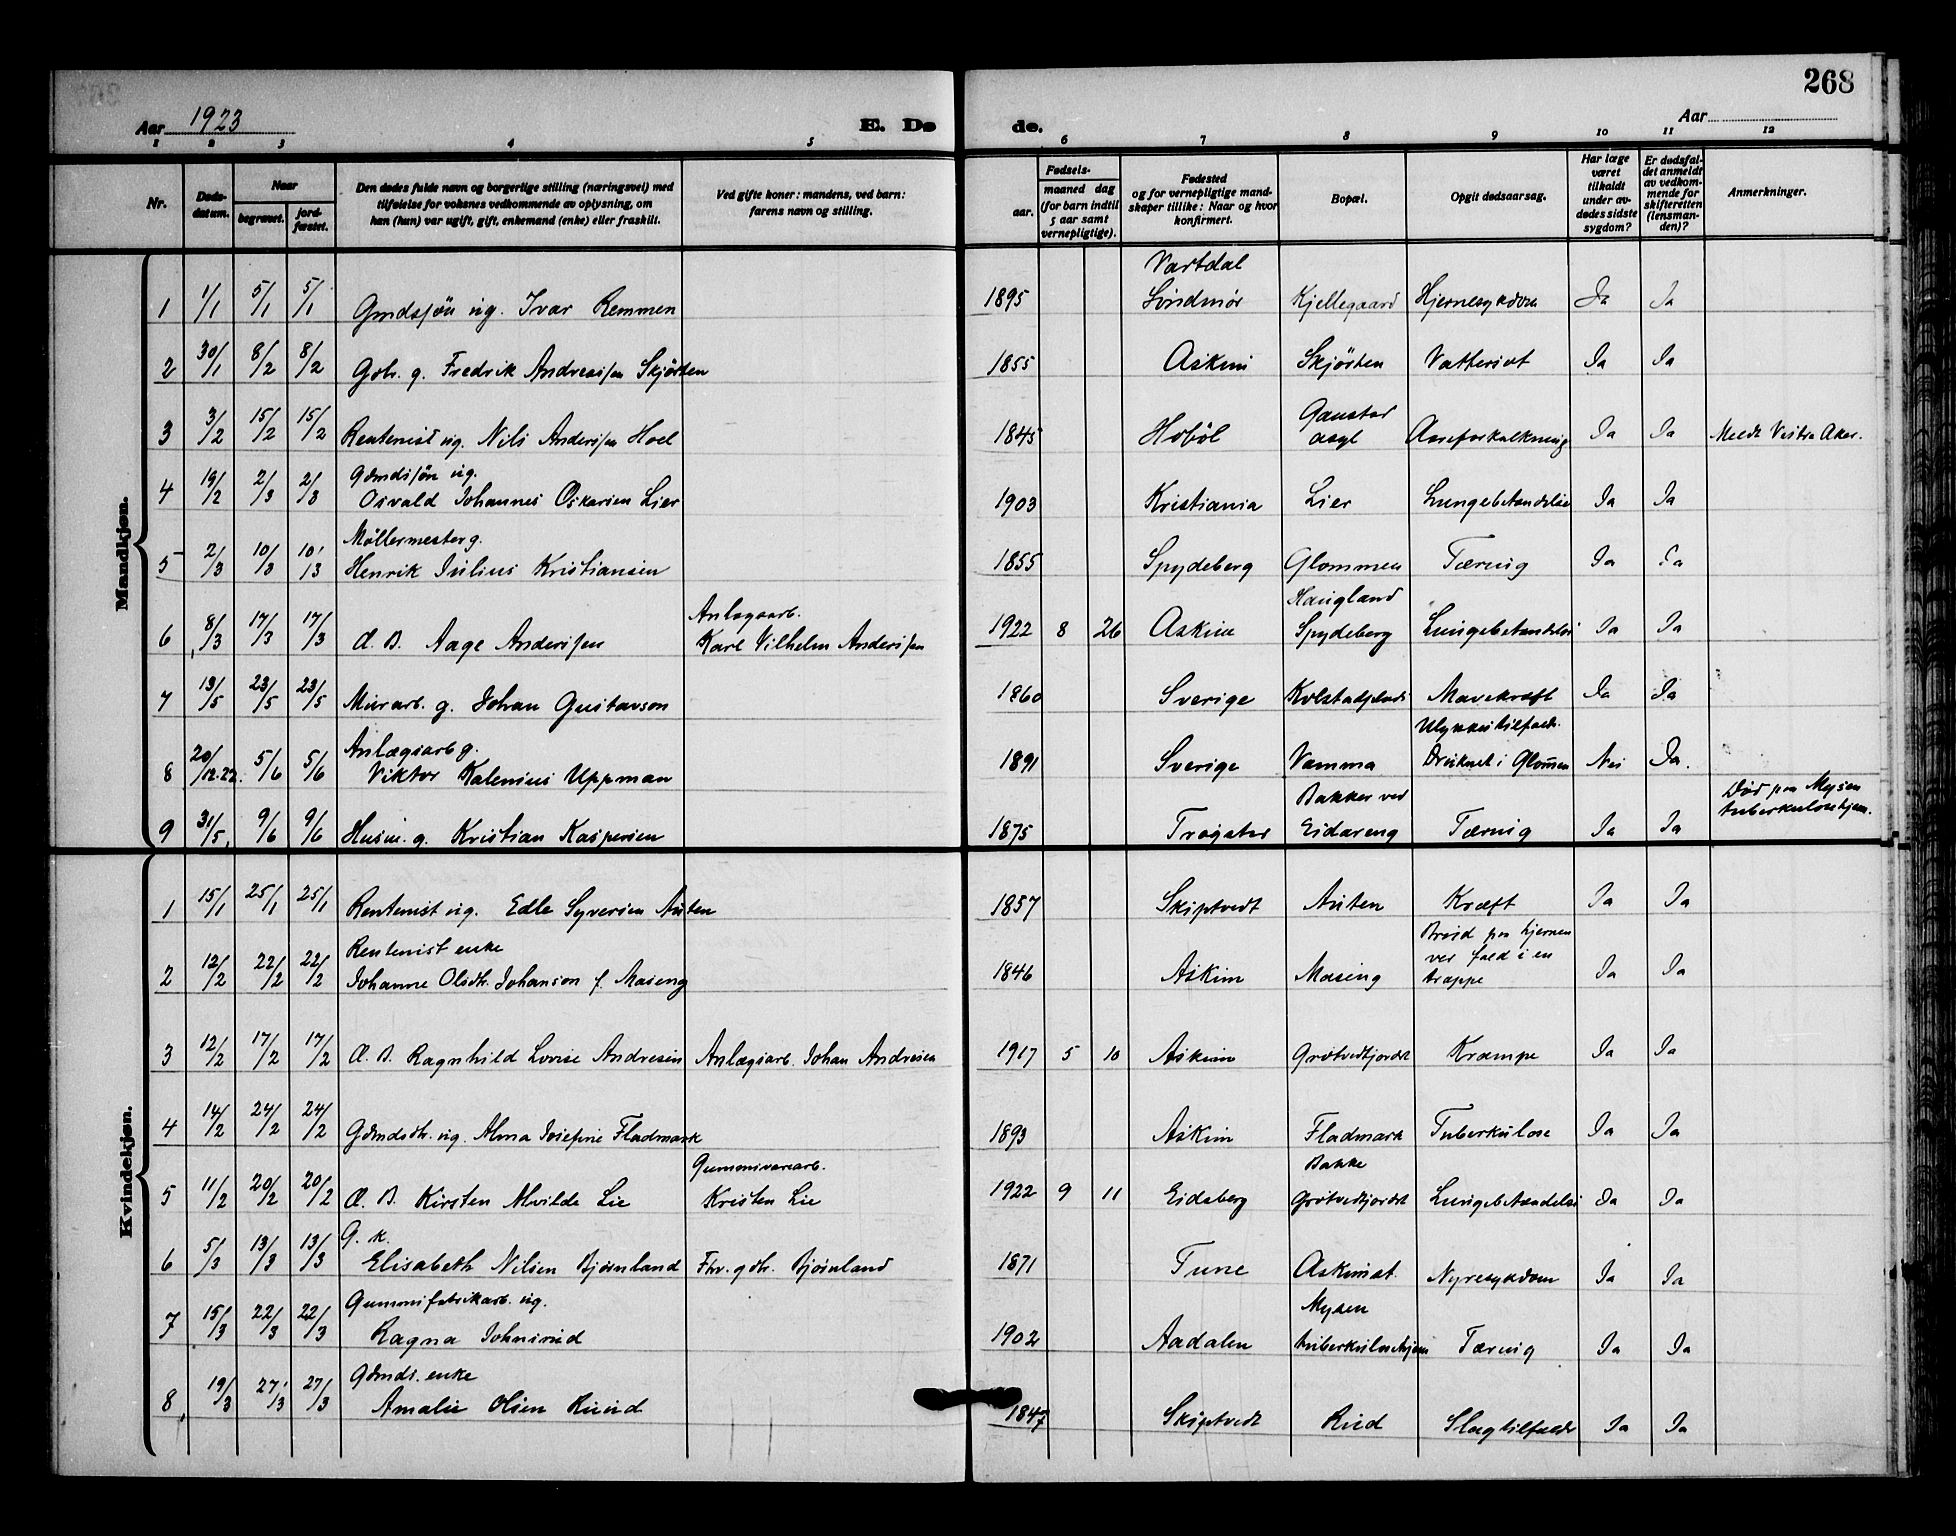 268
Aar 1923
E. Dø
de.
Aar
1 2 3 4 5 6 7 8 9 10 11 12
Nr.
Døds-
datum.
Naar
begravet.
jord-
fæstet.
Den dødes fulde navn og borgerlige stilling (næringsvei) med
tilføielse for voksnes vedkommende av oplysning, om
han (hun) var ugift, gift, enkemand (enke) eller fraskilt.
Ved gifte koner: mandens, ved barn:
farens navn og stilling.
Fødsels-
aar.
maaned dag
(for barn indtil
5 aar samt
vernepligtige).
Fødested
og for vernepligtige mand-
skaper tillike: Naar og hvor
konfirmert.
Bopæl.
Opgit dødsaarsag.
Har læge
været
tilkaldt
under av-
dødes sidste
sygdom?
Er dødsfal-
det anmeldt
av vedkom-
mende for
skifteretten
(lensman-
den)?
Anmerkninger.
Mandkjøn.
Vartdal
1 1/1 5/1 5/1 Gmdsjøn ug. Ivar Remmen 1895 Søndmør Kjellegaard Hjernesykdom Ja Ja
2 30/1 8/2 8/2 Gbr. g. Fredrik Andreassen Skjørten 1855 Askim Skjørten Vattersot Ja Ja
Gaustad
3 3/2 15/2 15/2 Rentenist ug. Nils Andersen Hoel 1845 Hobøl asyl Aareforkalkning Ja Ja Meldt Vestre Aker.
Gdmdssøn ug.
4 19/2 2/3 2/3 Osvald Johannes Oskarsen Lier 1903 Kristiania Lier Lungebetændelse Ja Ja
Møllermester g.
5 2/3 10/3 10/3 Henrik Julius Kristiansen 1855 Spydeberg Glommen Tæring Ja Ja
Anlægsarb. Haugland
6 8/3 17/3 17/3 Æ. B. Aage Anderssen Karl Vilhelm Anderssen 1922 8 26 Askim Spydeberg Lungebetændelse Ja Ja
7 13/5 23/5 23/5 Murarb. g. Johan Gustavson 1860 Sverige Kolstadplads Mavekræft Ja Ja
Anlægsarb g. Ulykkestilfælde.
8 20/12.22. 5/6 5/6 Viktor Kalenius Uppman 1891 Sverige Vamma Druknet i Glommen Nei Ja.
Bakker ved Død paa Mysen
tuberkulosehjem.
9 31/5. 9/6 9/6 Husm. g. Kristian Kaspersen 1875 Trøgstad Eidareng Tæring Ja Ja
Kvindekjøn.
1 15/1 25/1 25/1 Rentenist ug. Edle Syversen Auten 1857 Skiptvedt Auten Kræft Ja Ja
Rentenist enke Brist paa hjernen
ved fald i en
2 12/2 22/2 22/2 Johanne Olsdtr. Johanson f. Maseng 1846 Askim Maseng trappe Ja Ja
3 12/2 17/2 17/2 Æ. B. Ragnhild Lovise Andresen Anlægsarb. Johan Andresen 1917 5 10 Askim Grøtvedtjordet Krampe Ja Ja
4 14/2 24/2 24/2 Gdmdsdtr. ug. Alma Josefine Fladmark 1893 Askim Fladmark Tuberkulose Ja Ja
Gummivarearb. Bakke
5 11/2 20/2 20/2 Æ. B. Kirsten Alvilde Lie Kristen Lie 1922 9 11 Eidsberg Grøtvedtjordet Lungebetændelse Ja Ja
G. k.
6 5/3 13/3 13/3 Elisabeth Nilsen Bjørnland Fhv. gbr. Bjørnland 1871 Tune Askim st. Nyresykdom Ja Ja
Gummifabrikarb. ug. Mysen
7 15/3 22/3 22/3 Ragna Johnsrud 1902 Aadalen tuberkulosehjem Tæring Ja Ja
Gdmds. enke
8 19/3 27/3 27/3 Amalie Olsen Ruud 1847 Skiptvedt Rud Slagtilfælde Ja Ja